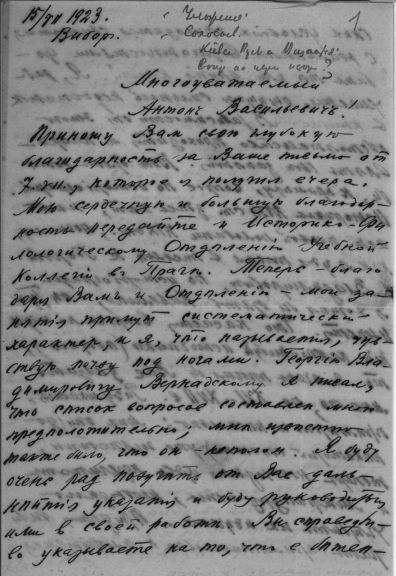 15/XII 1923.
Выборг.
1
Многоуважаемый
Антонъ Васильевичъ!
Приношу Вам свою глубокую
благодарность за Ваше письмо от
7.XII., которое я получил вчера.
Мою сердечную и большую благодар-
ность передайте и Историко-Фи-
лологическому Отдѣленію Учебной
Коллегіи въ Прагѣ. Теперь – благо-
даря Вамъ и Отдѣленію – мои за-
нятія примут систематическій
характер, и я, что называется, чув-
ствую почву под ногами. Георгію Вла-
димировичу Вернадскому я писал,
что список вопросов составлен мной
предположительно; мнѣ извѣстно
также было, что он неполон. Я буду
очень рад получить от Вас даль-
нѣйшія указанія и буду руководиться
ими в своей работѣ. Вы справедли-
во указываете на то, что в